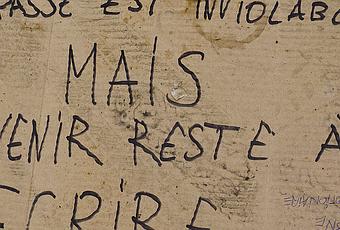 PASSÉ EST INVIOLABL
MAIS
VENIR RESTE À
ECRIRE